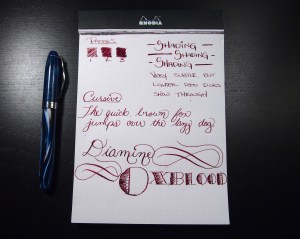 RHODIA
PASSES
1 2 3
SHADING
SHADING
SHADING
VERY SUBTLE BUT
LIGHTER RED DOES
SHOW THROUGH
Cursive
The quick brown fox
jumps over the lazy dog
Diamine
OXBLOOD